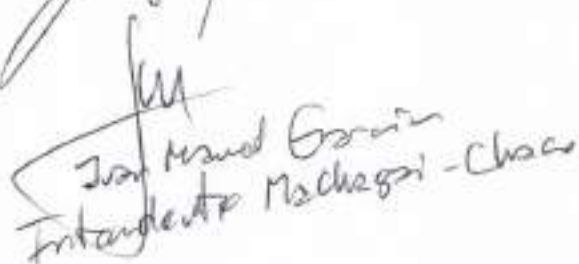 Juan Manuel García
Intendente Machagai - Chaco